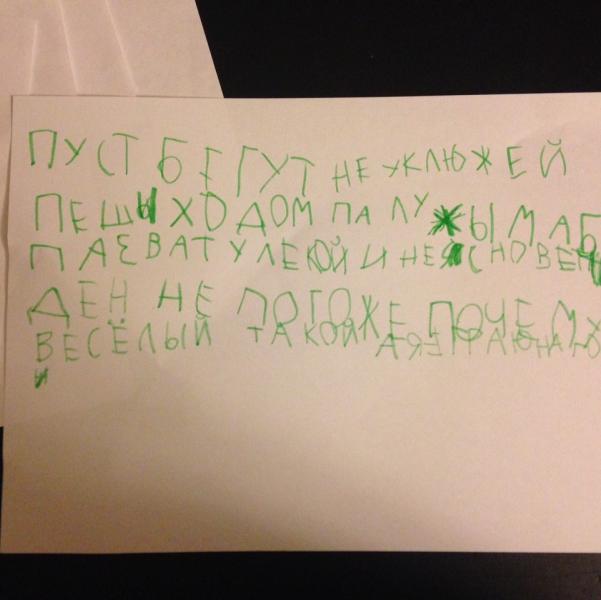 ПУСТ БЕГУТ НЕУКЛЮЖЕЙ
ПЕШЫХОДОМ ПА ЛУЖЫМ А
ПАЕВАТУЛЕКОЙ И НЕЯСНО ВЕ
ДЕН НЕ ПОГОЖЕ ПОЧЕМУ
ВЕСЁЛЫЙ ТАКОЙ А Я ЕГРАЮ НА